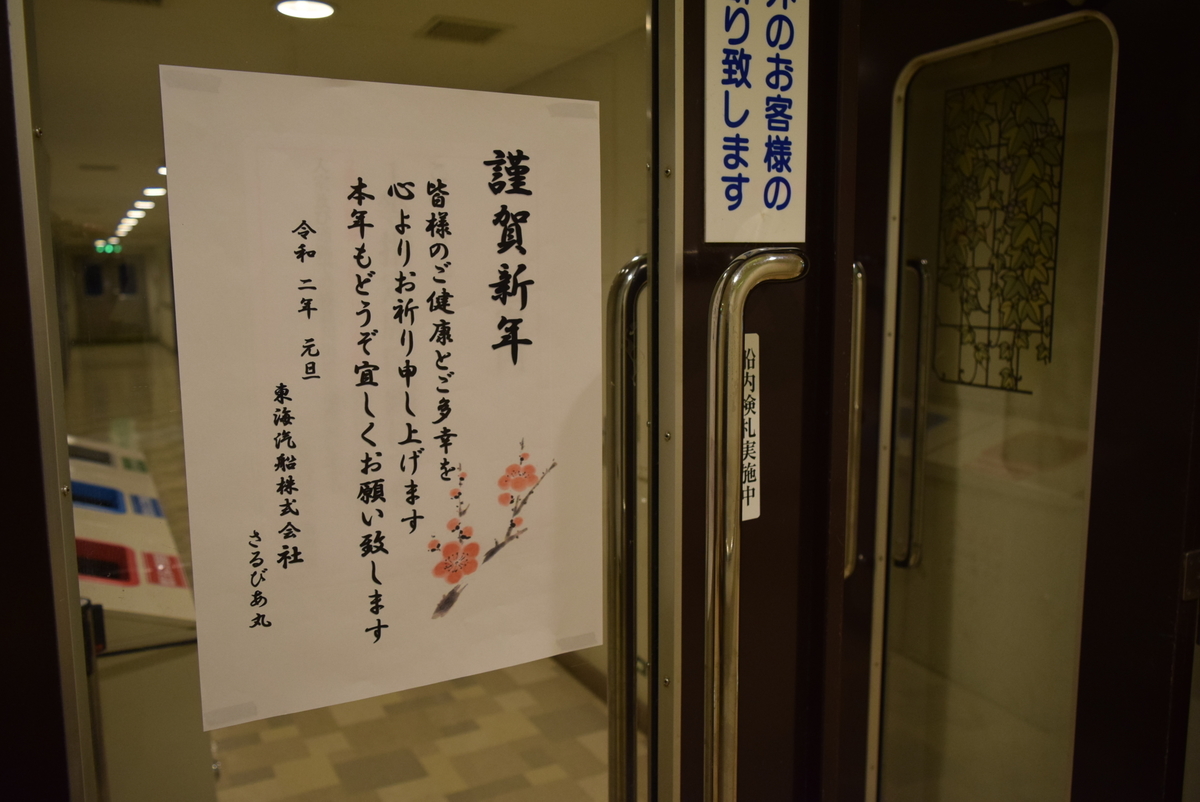 謹賀新年
皆様のご健康とご多幸を
心よりお祈り申し上げます
本年もどうぞ宜しくお願い致します
令和 二年 元旦
東海汽船株式会社
さるびあ丸
のお客様の
り致します
船内検札実施中